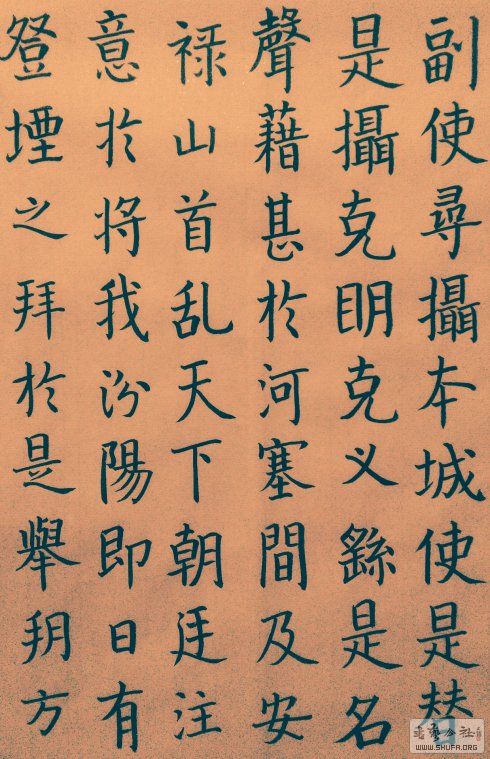 副使尋攝本城使是替
是攝克眀克义繇是名
聲藉甚於河塞間及安
禄山首乱天下朝廷注
意於将我汾陽即日有
登壇之拜於是舉朔方
WWW.SHUFA.ORG